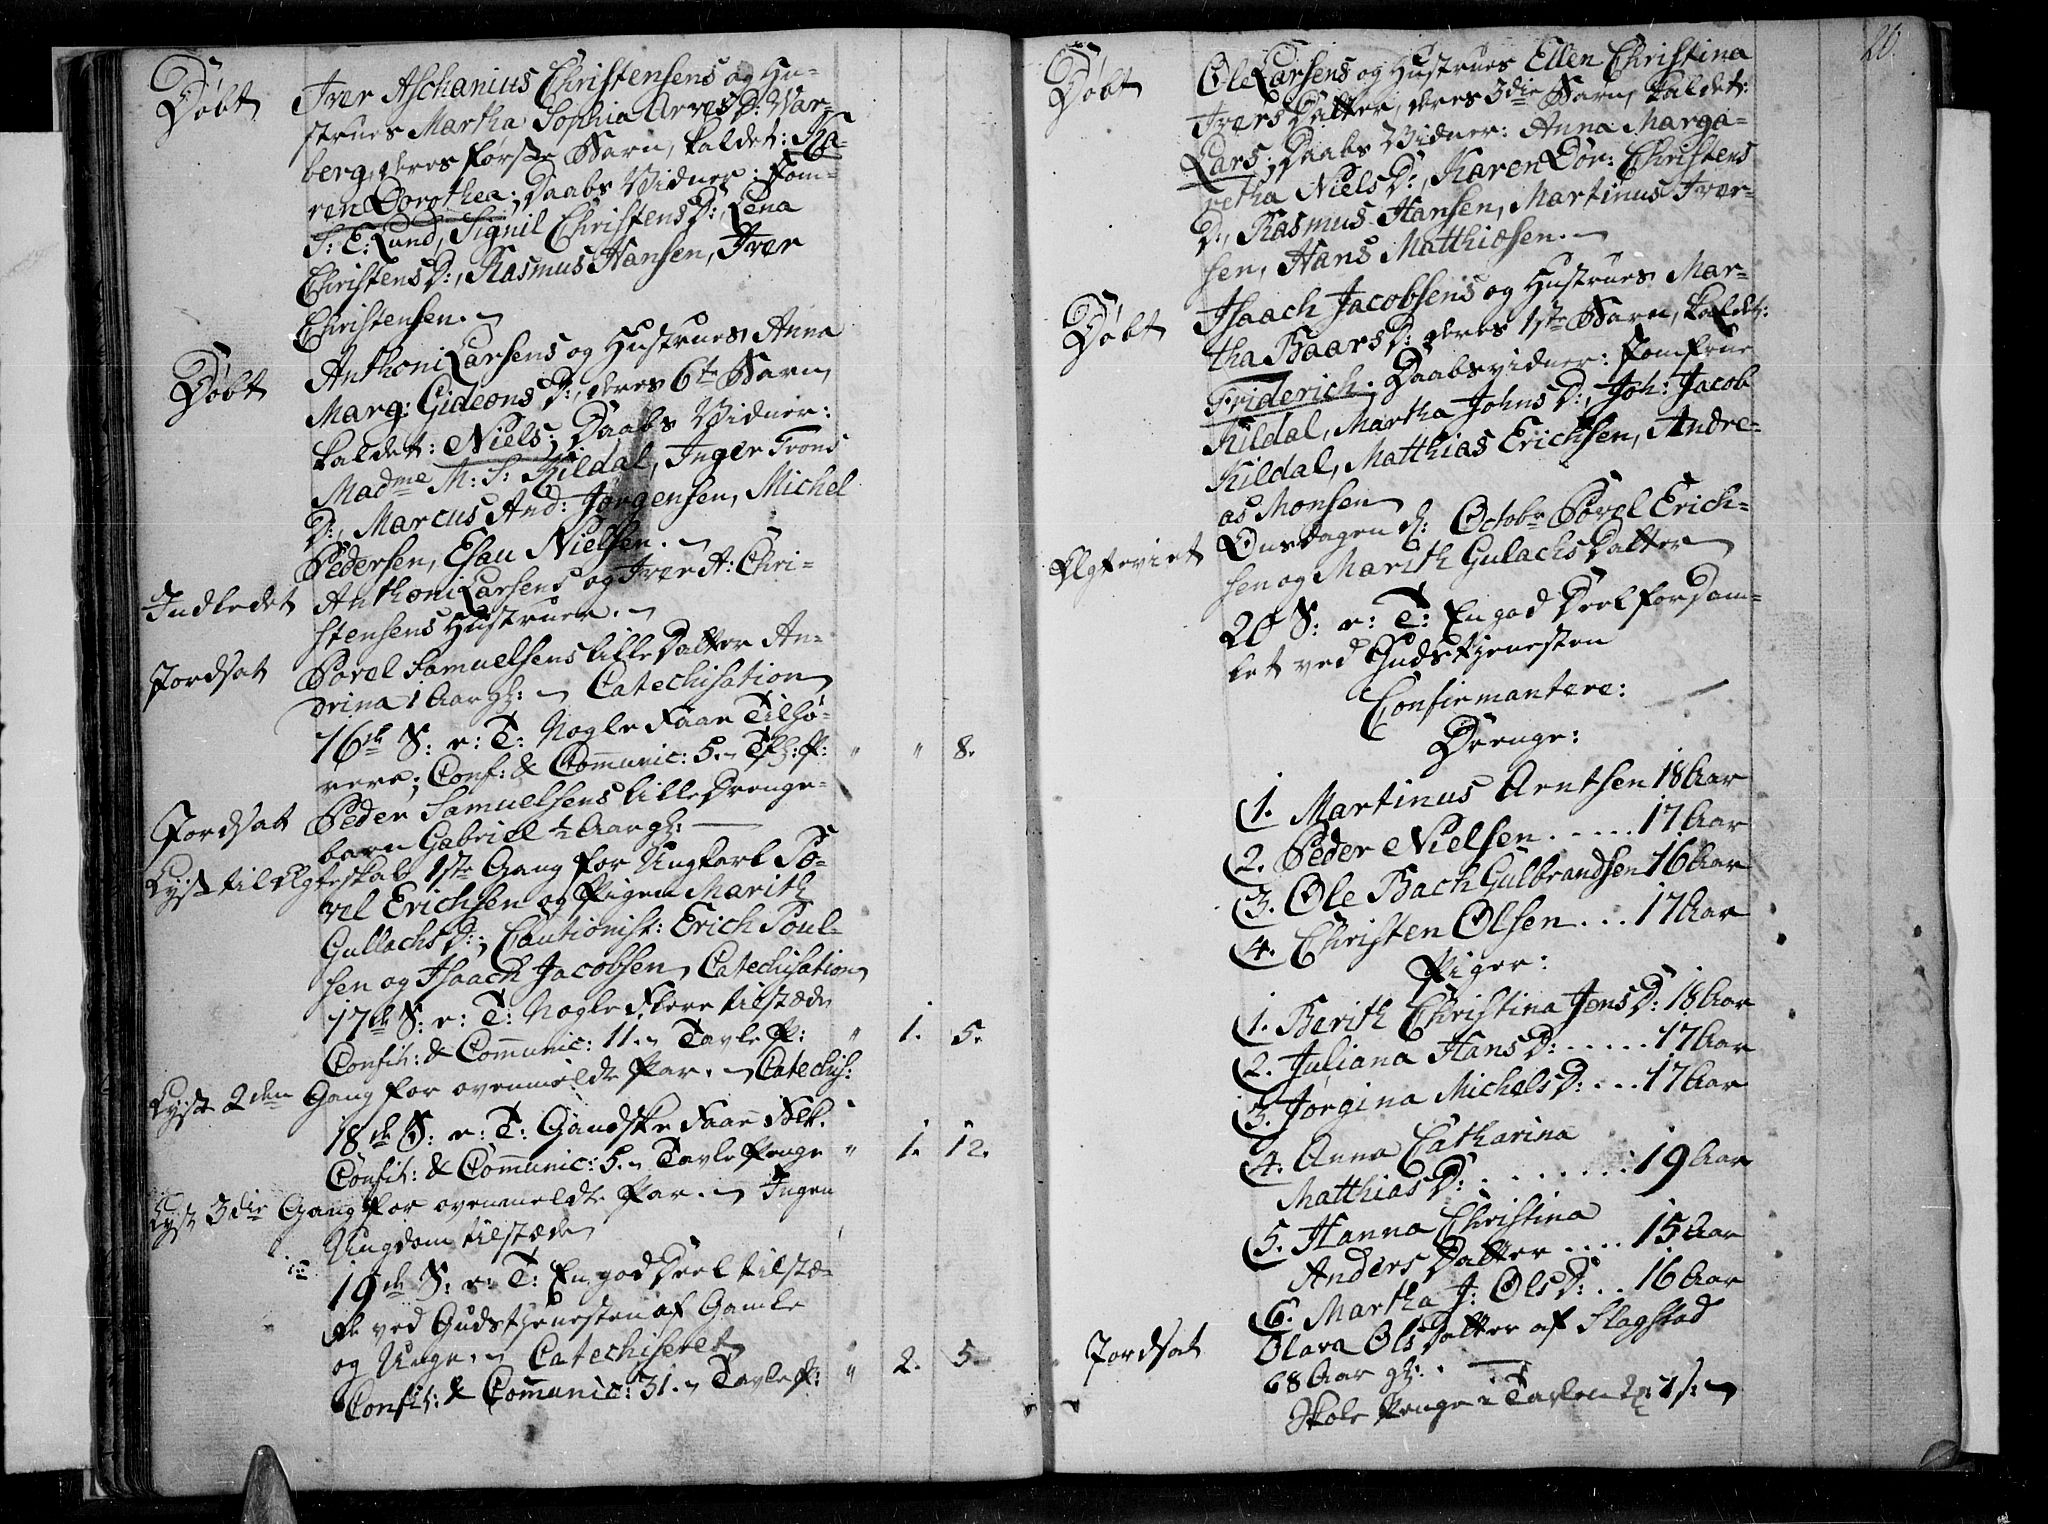 Døbt Iver Aschanius Christensens og Hu-
strues Martha Sophia Arves D: War-
berg, deres første Barn, kaldet: Ka-
ren Dorothea; Daabs Vidner: Jom-
S: E: Lund, Signil Christens D:, Lena
Christens D:, Rasmus Hansen, Iver
Christensen.
Døbt Anthoni Larsens og Hustrues Anna
Marg: Gideons D:, deres 6te Barn,
kaldet: Niels; Daabs Vidner:
Madme M: S: Kildal, Inger Trons
D:, Marcus And: Jørgensen, Michel
Pedersen, Esau Nielsen.
Indledet Anthoni Larsens og Iver A: Chri-
stensens Hustruer.
Jordsat Povel Samuelsens lille Datter An-
drina 1 Aar gl: Catechisation
16de S: e: T: Nogle Faae Tilhø-
rere; Conf: & Communic: 5. Tfl: P: " " 8.
Jordsat Peder Samuelsens lille Drenge-
barn Gabriel ½ Aar gl:
Lyst til Ægteskab 1ste Gang for Ungkarl Po-
vel Erichsen og Pigen Marith
Gullachs D:; Cautionist: Erich Poul-
sen og Isaach Jacobsen, Catechisation
17de S: e: T: Nogle Flere tilstæde
Confit: & Communic: 11. Tavle P: " 1. 5.
Lyst 2den Gang for ovenmeldte Par. Catechis:
18de S: e: T: Gandske Faae Folk.
Confit: & Communic: 5. Tavle Penge " 1. 12.
Lyst 3die Gang for ovenmeldte Par. Ingen
Ungdom tilstæde
19de S: e: T: En god Deel tilstæ-
de ved Gudstjenesten af Gamle
og Unge. Catechiseret
Confit: & Communic: 31. Tavle P: " 2. 5.
20.
Døbt Ole Larsens og Hustrues Ellen Christina
Ivers Datter, deres 3die Barn, kaldet:
Lars; Daabs Vidner: Anna Marga-
retha Niels D:, Karen Dor: Christens
D:, Rasmus Hansen, Martinus Iver-
sen, Hans Matthiæsen.
Døbt Isaach Jacobsens og Hustrues Mar-
tha Baars D: deres 1ste Barn, kaldet:
Friderich; Daabsvidner: Jomfrue
Kildal, Martha Johns D:, Joh: Jacob
Kildal, Matthias Erichsen, Andre-
as Monsen
Ægteviet Onsdagen d: Octobr Povel Erich-
sen og Marith Gulachs Datter
20 S: e: T: En god Deel forsam-
let ved Gudstjenesten
Confirmantere:
Drenge:
1. Martinus Arntsen 18 Aar
2. Peder Nielsen ..... 17 Aar
3. Ole Bach Gulbrandsen 16 Aar
4. Christen Olsen ... 17 Aar
Piger:
1. Berith Christina Jens D: 18 Aar
2. Juliana Hans D: ..... 17 Aar
3. Jørgina Michels D: ... 17 Aar
4. Anna Catharina
Matthias D: ....... 19 Aar
5. Hanna Christina
Anders Datter .... 15 Aar
6. Martha J: Ols D: .. 16 Aar
Jordsat Olava Ols Datter af Slagstad
68 Aar gl:
Skole Penge i Tavlen